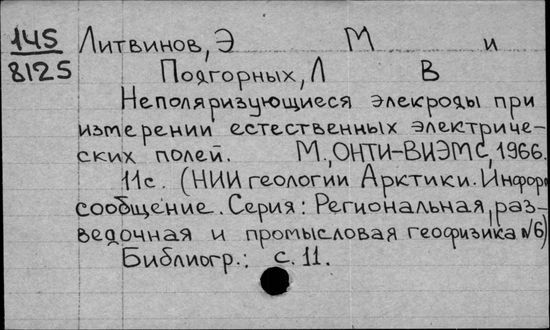 145 Литвинов, Э М и
8125 Подгорных, Л В
Неполяризующиеся элекроды при
измерении естественных электриче-
ских полей. М., ОНТИ-ВИЭМС, 1966.
11с. (НИИ геологии Арктики. Информ
сообщение. Серия: Региональная, раз-
ведочная и промысловая геофизика №6)
Библиогр.: с. 11.